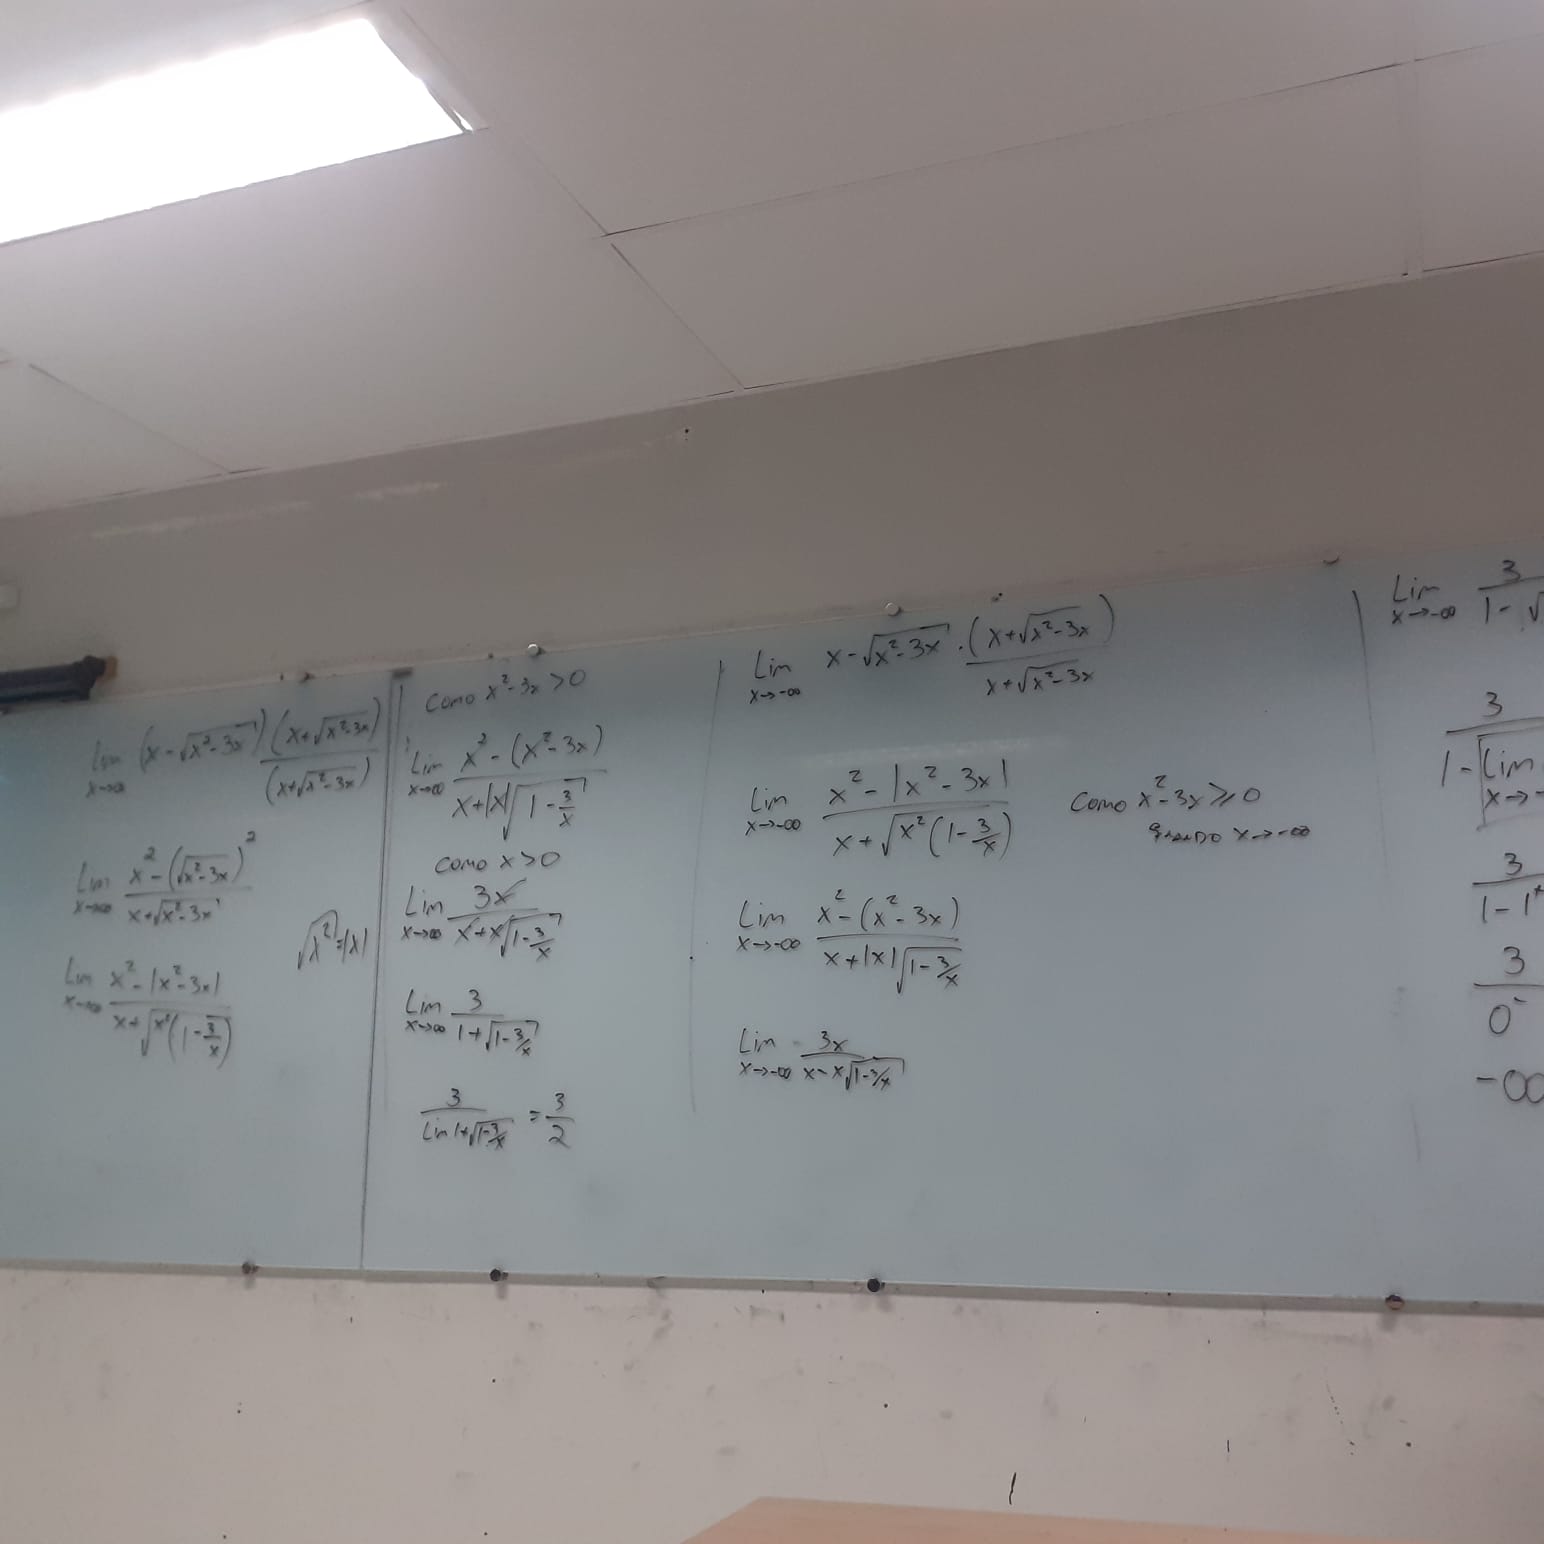 Lim x→∞ (x - √(x² - 3x)) (x + √(x² - 3x)) / (x + √(x² - 3x))
Lim x→∞ (x² - (√(x² - 3x))²) / (x + √(x² - 3x))
√(x²) = |x|
Lim x→∞ (x² - |x² - 3x|) / (x + √(x²(1 - 3/x)))
Como x² - 3x > 0
Lim x→∞ (x² - (x² - 3x)) / (x + |x|√(1 - 3/x))
como x > 0
Lim x→∞ 3x / (x + x√(1 - 3/x))
Lim x→∞ 3 / (1 + √(1 - 3/x))
3 / (Lim 1 + √(1 - 3/x)) = 3/2
Lim x→-∞ x - √(x² - 3x) · (x + √(x² - 3x)) / (x + √(x² - 3x))
Lim x→-∞ (x² - |x² - 3x|) / (x + √(x²(1 - 3/x)))
Como x² - 3x ≥ 0
x→-∞
Lim x→-∞ (x² - (x² - 3x)) / (x + |x|√(1 - 3/x))
Lim x→-∞ 3x / (x - x√(1 - 3/x))
Lim x→-∞ 3 / (1 - √
3 / (1 - Lim x→-
3 / (1 - 1⁺
3 / 0⁻
-∞